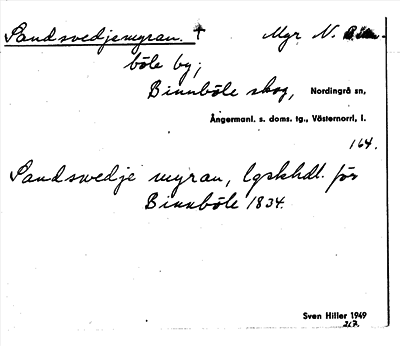 Sandsvedjemyran. † Myr N.
böle by;
Binnböle skog, Nordingrå sn,
Ångermanl. s. doms. tg., Västernorrl. l.
164.
Sandswedje myran, lgskhdl. för
Binnböle 1834.
Sven Hiller 1949
217.